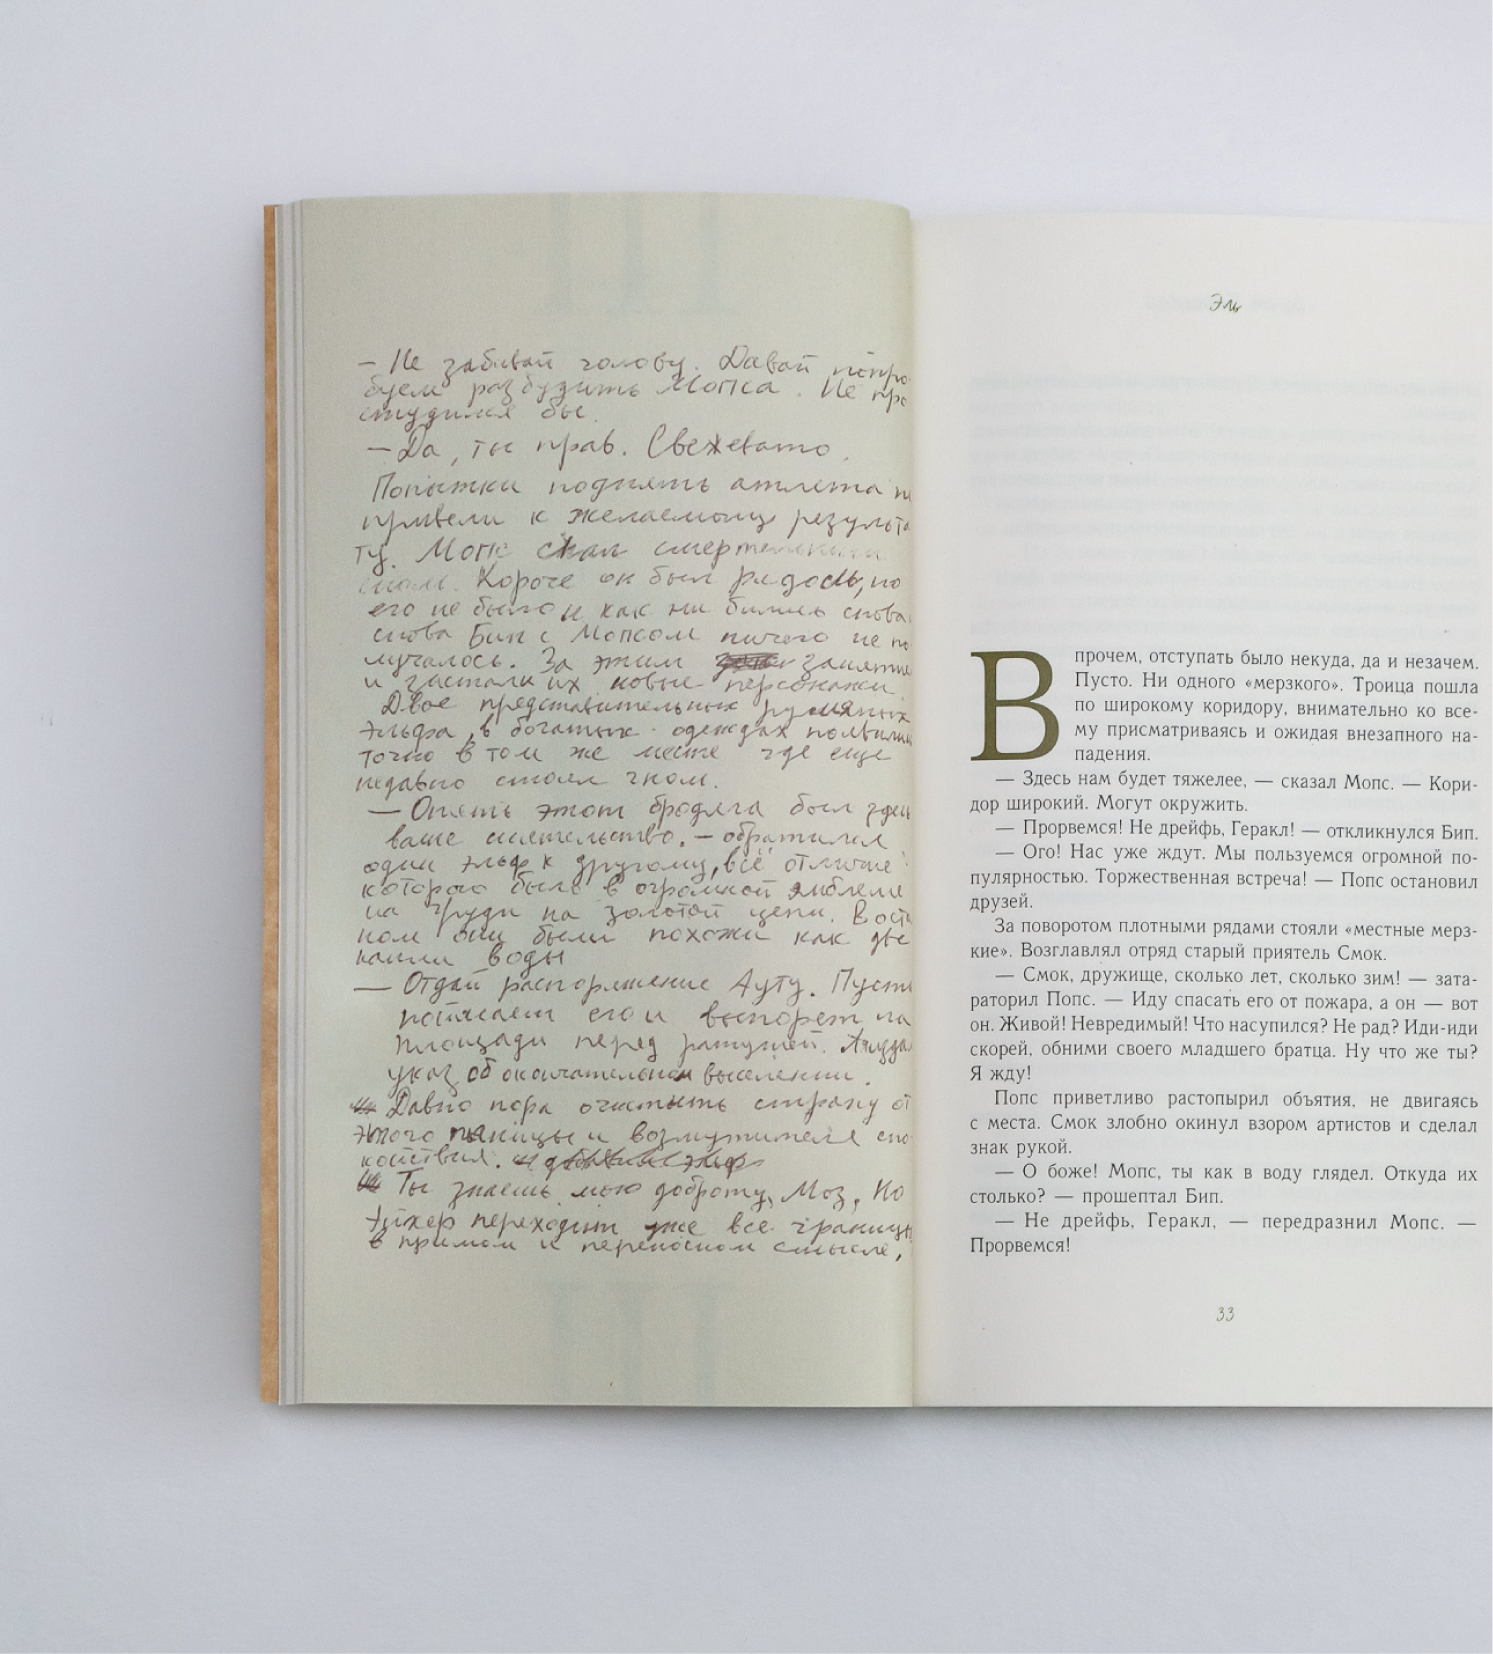 — Не забивай голову. Давай попро
буем разбудить Мопса. Не про
студился бы.
— Да, ты прав. Свежевато.
Попытки поднять атлета н
привели к желаемому результа
ту. Мопс спал смертельным
сном. Короче он был рядось, но
его не было и как ни бились снова
снова Бип с Мопсом ничего не по
лучалось. За этим занятие
и застали их новые персонажи.
Двое представительных румяных
эльфа, в богатых одеждах появили
точно в том же месте где еще
недавно стоял гном.
— Опять этот бродяга был здесь
ваше сиятельство, — обратился
один эльф к другому, всё отличие
которого было в огромной эмблеме
на груди на золотой цепи. В ост
ном они были похожи как две
капли воды
— Отдай распоряжение Ауту. Пусть
поймает его и выпорет на
площади перед ратушей.
указ об окончательном выселении.
Давно пора очистить страну от
этого пьяницы и возмутителя спо
койствия.
Ты знаешь мою доброту, Моз, Но
переходит уже все границы
в прямом и переносном смысле,
Эль
Впрочем, отступать было некуда, да и незачем.
Пусто. Ни одного «мерзкого». Троица пошла
по широкому коридору, внимательно ко все-
му присматриваясь и ожидая внезапного на-
падения.
— Здесь нам будет тяжелее, — сказал Мопс. — Кори-
дор широкий. Могут окружить.
— Прорвемся! Не дрейфь, Геракл! — откликнулся Бип.
— Ого! Нас уже ждут. Мы пользуемся огромной по-
пулярностью. Торжественная встреча! — Попс остановил
друзей.
За поворотом плотными рядами стояли «местные мерз-
кие». Возглавлял отряд старый приятель Смок.
— Смок, дружище, сколько лет, сколько зим! — зата-
раторил Попс. — Иду спасать его от пожара, а он — вот
он. Живой! Невредимый! Что насупился? Не рад? Иди-иди
скорей, обними своего младшего братца. Ну что же ты?
Я жду!
Попс приветливо растопырил объятия, не двигаясь
с места. Смок злобно окинул взором артистов и сделал
знак рукой.
— О боже! Мопс, ты как в воду глядел. Откуда их
столько? — прошептал Бип.
— Не дрейфь, Геракл, — передразнил Мопс. —
Прорвемся!
33